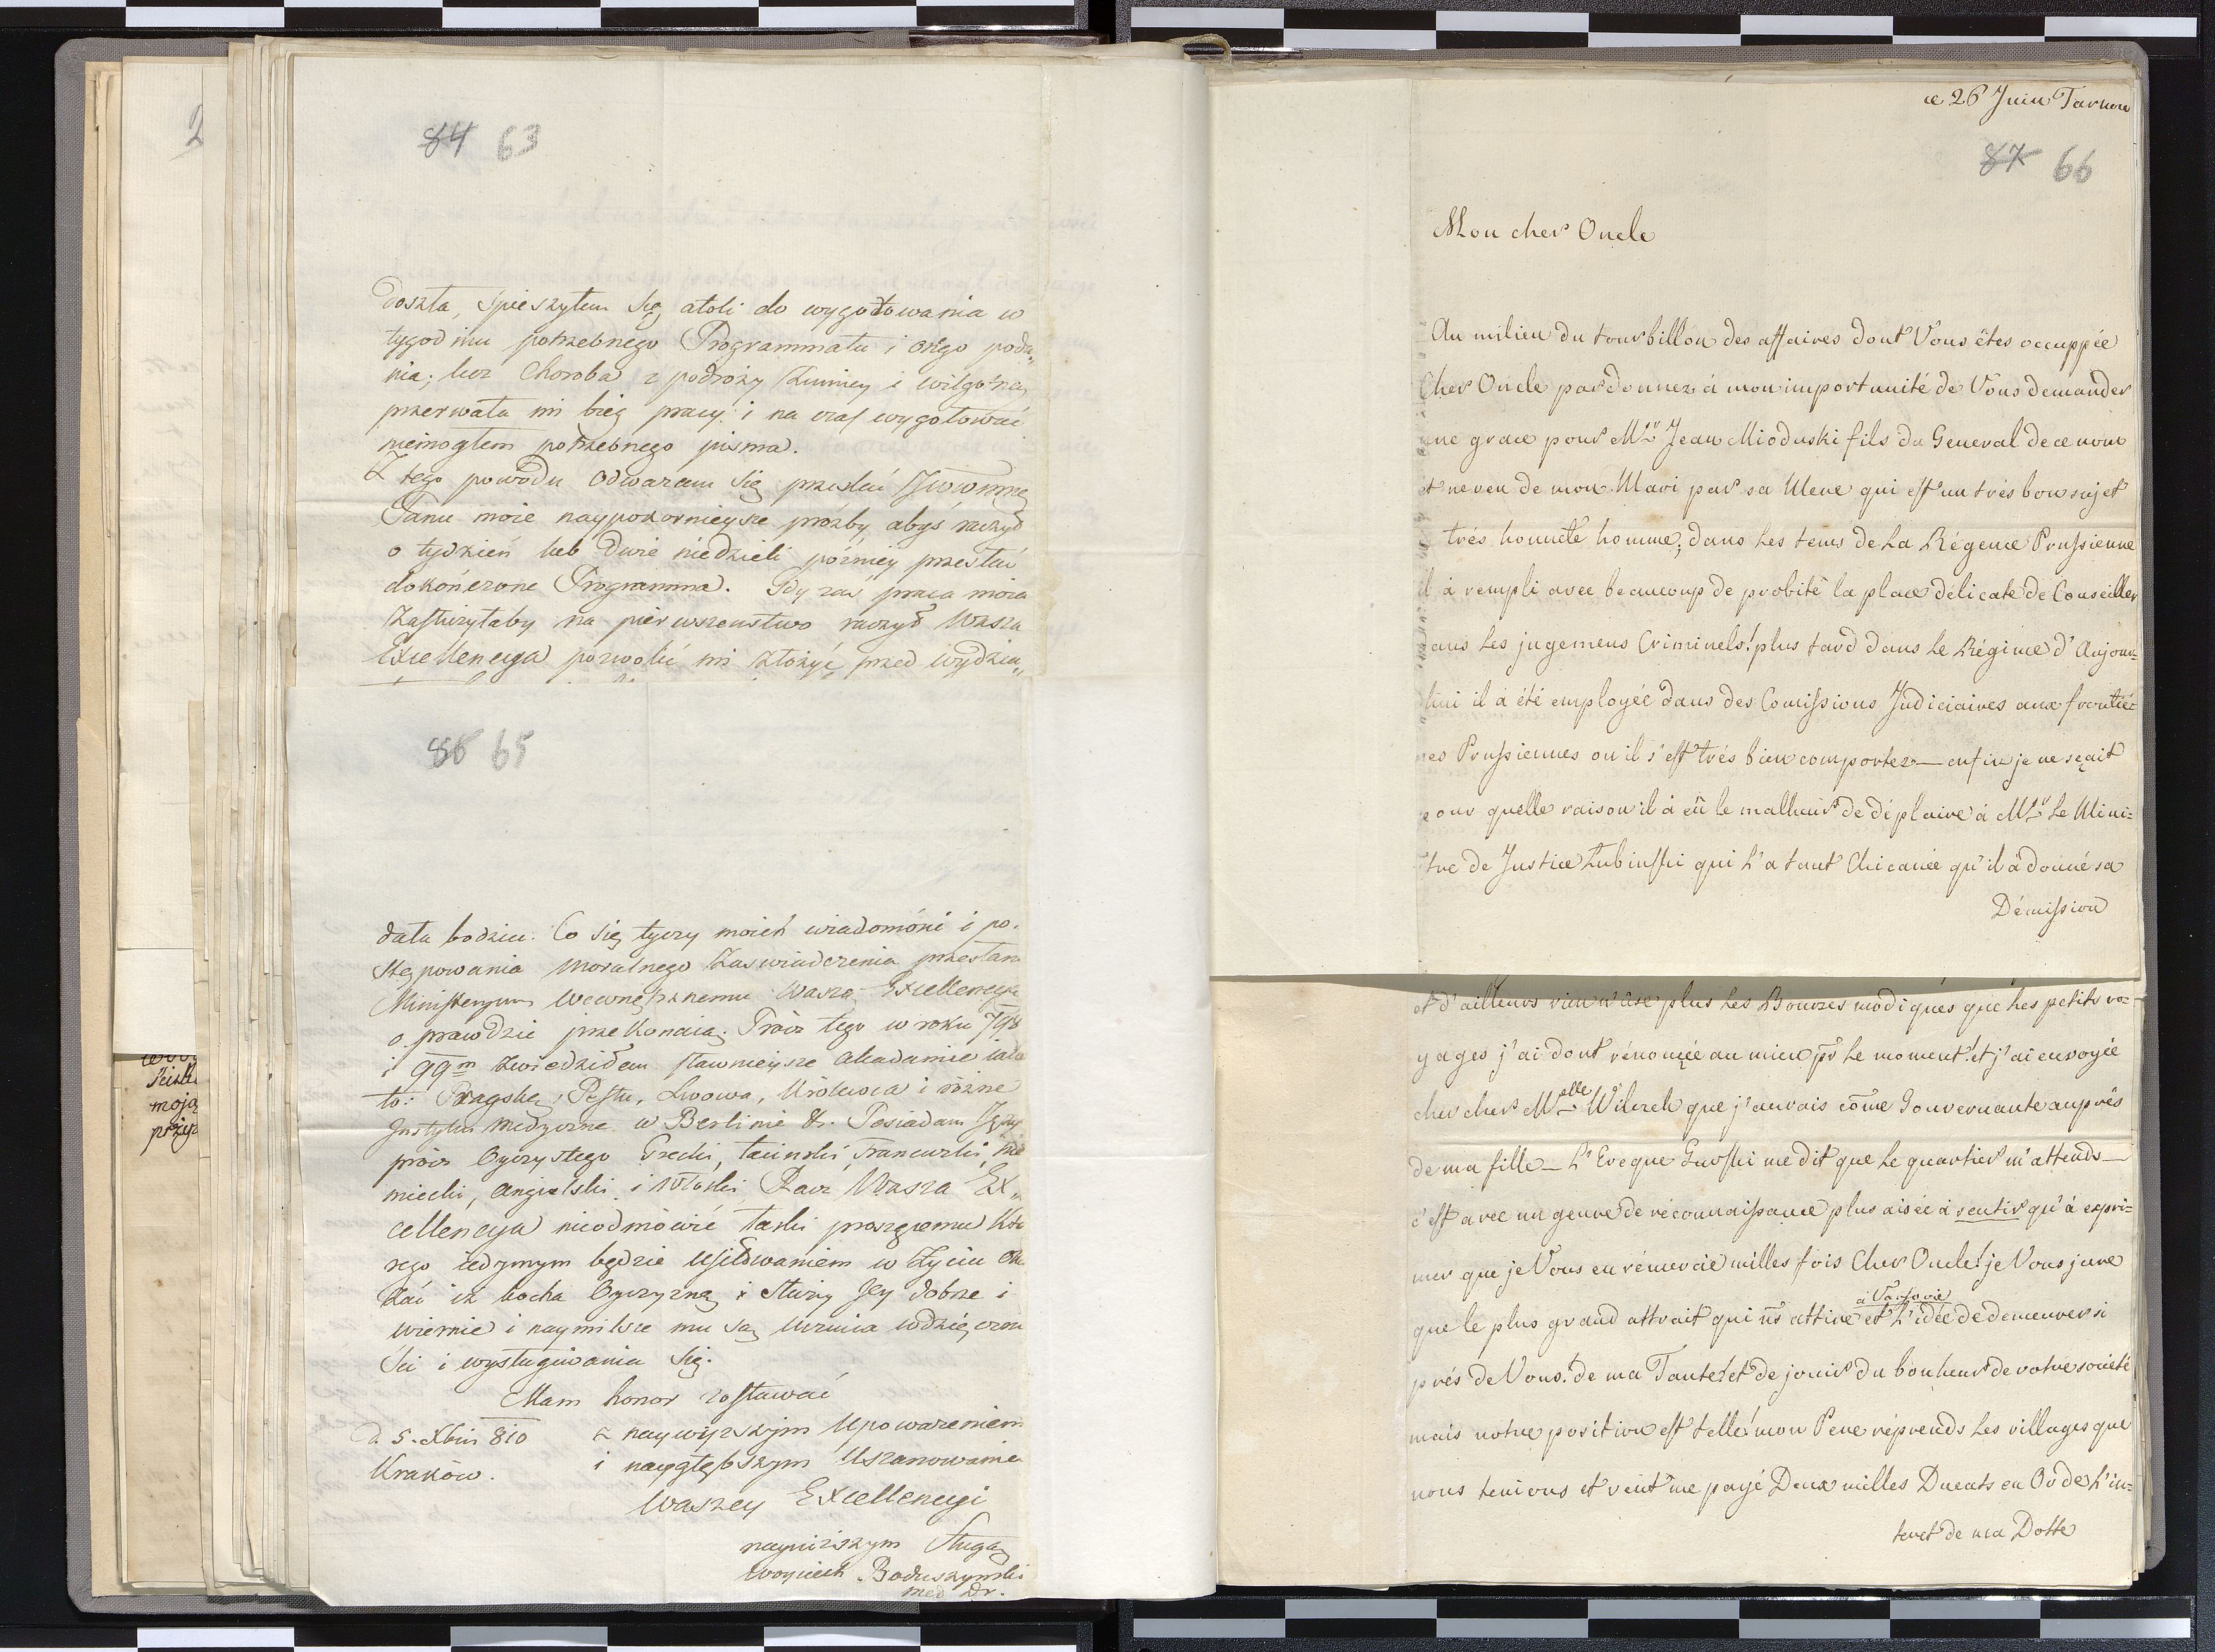 2
84 63
doszła, śpieszyłem się atoli do wygotowania w
tygodniu potrzebnego Programmatu i onego poda„
nia; lecz Choroba z podróży zimney i wilgotney
przerwała mi bieg pracy i na czas wygotować
niemogłem potrzebnego pisma.
Z tego powodu odważam się przesłać JWWmu
Panu moie naypokornieysze prośby abyś raczył
o tydzień lub dwie niedzieli pózniey przesłać
dokończone Programma. Gdy zaś praca moia
zasłużyłaby na pierwszenstwo raczyć Wasza
Excellencya pozwolić mi złożyć przed wydzia„
86 65
dała bodzcu. Co się tyczy moich wiadomości i po„
stępowania moralnego zaswiadczenia przesłane
Ministeryum Wewnętrznemu Waszą Excellencye
o prawdzie przekonaią. Prócz tego w roku 798
i 99m zwiedziłem sławnieysze Akademie iako
to: Pragską, Pestu, Lwowa, Królewca i różne
Instytuta medyczne w Berlinie &. Posiadam Języ
prócz Oyczystego Grecki, łaciński, Francuzki, nie
miecki, angielski i włoski. Racz Wasza Ex„
cellencya nieodmówić łaski proszącemu któ
rego iedynym będzie usiłowaniem w życiu oka
zać iż kocha Oyczyznę i służy Jey dobrze i
wiernie i naymilsze mu są uczucia wdzięczno
ści i wysługiwania się.
Mam honor zostawać
d. 5. Xbris 810 z naywyższym Upoważeniem
Kraków. i naygłębszym Uszanowaniem
Waszey Excellencyi
nayniższym sługą
Woyciech Boduszyński
med Dr.
moją
ce 26 Juin Tarnow
87 66
Mon cher Oncle
Au milieu du tourbillon des affaires dont Vous êtes occuppée
Cher Oncle pardonnez à mon importunité de Vous demander
une grace pour Mr Jean Mioduski fils du General de ce nom
et neveu de mon Mari par sa Mere qui est un très bon sujet
très honnête homme, dans Les tems de La Régence Prussienne
il à rempli avec beaucoup de probité la place délicate de Conseiller
dans Les jugemens Criminels! plus tard dans Le Régime d'Aujour=
dhui il à été employée dans des Comissions Judiciaires aux frontié=
res Prussiennes ou il s'est très bien comportez — enfin je ne sçait
pour quelle raison il à eü le malheur de déplaire à Mr Le Mini=
stre de Justice Lubinski qui L'a tant Chicanée qu'il à donné sa
Démission
et d'ailleurs rien n'use plus Les Bourses modiques que Les petits vo=
yages j'ai dont rénonçée au mien pr Le moment! et j'ai envoyée
chercher Mlle Wilczek que j'aurais come Gouvernante auprès
de ma fille — L'Eveque Gurski me dit que Le quartier m'attends —
c'est avec un genre de réconnaissance plus aisée à sentir qu'à expri=
mer que je Vous en rémercie milles fois Cher Oncle! je Vous jure
à Varsovie
que le plus grand attrait qui ns attire est L'idée de demeurer si
près de Vous! de ma Tante! et de jouir du bonheur de votre société
mais notre position est telle! mon Pere réprends Les villages que
nous tenions et veut me payé Deux milles Ducats en Or de L'in=
teret de ma Dotte